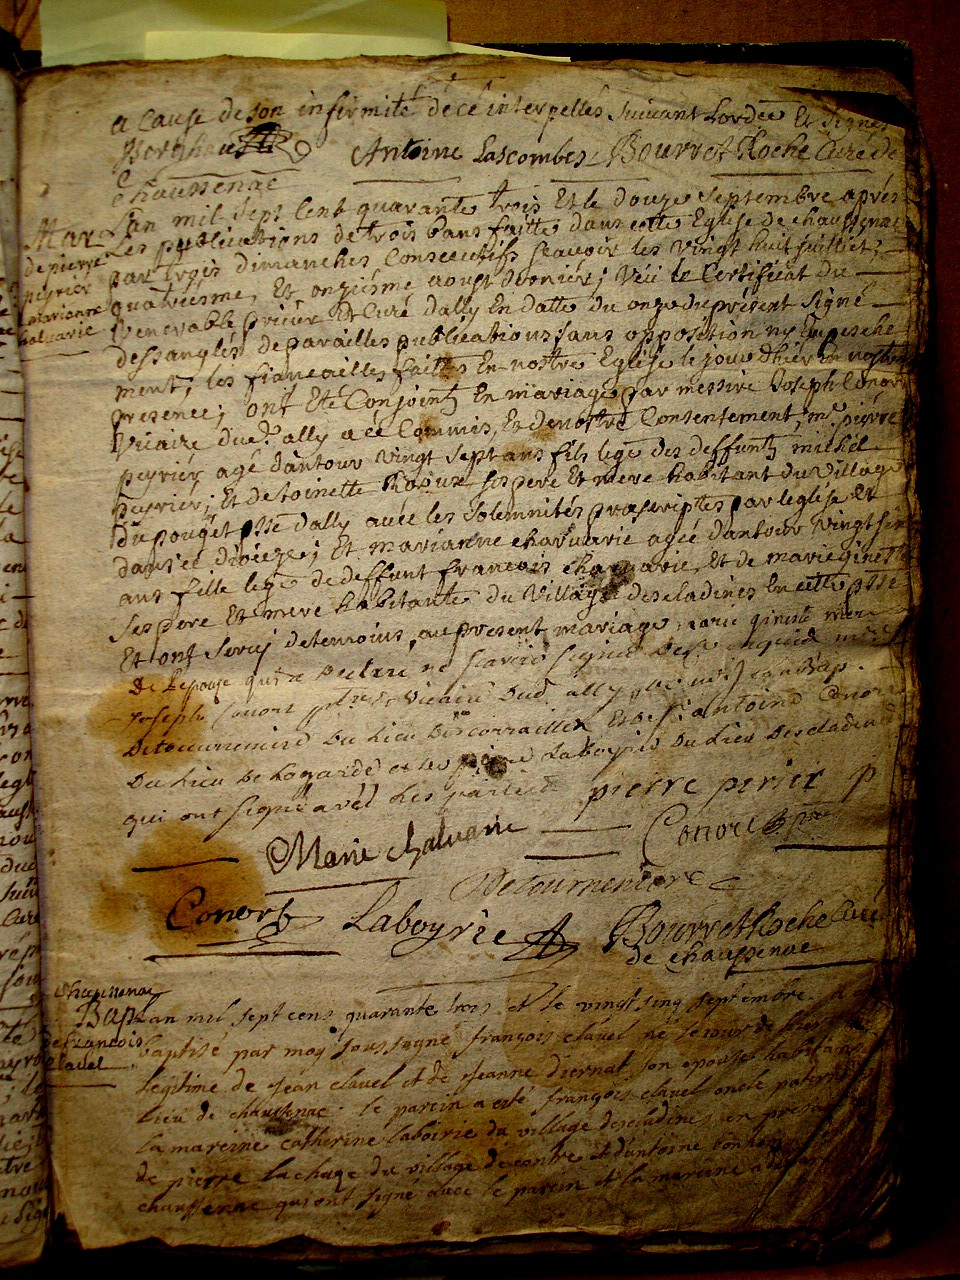 a Cause de son infirmité de ce interpellés suivant Lordce Et signés
Antoine Lascombes Bourret Roche Curé de
Chaussenac
Mar
de pierre
peyrier
Lan mil sept Cent quarante trois Et le douze septembre aprés
Les publications de trois bans faitte dans cette Eglise de chaussenac
par trois dimanches Consecutifs scavoir les vingt huit juilliet,
marianne
chalvarie
quatriesme, Et onziésme aoust derniér; Veü le Certificat du
Venerable prieur Et Curé dally En datte du onze du présent signé
dessanglés de pareilles publications sans opposition ny Empesche
ment; les fiancailles faittes En nostre Eglise le jour dhiér En nostre
presence; ont Eté Conjoint En mariage par messire Joseph Conort
Vicaire dud. ally a ce Commis, Et de nostre Consentement, me. piérre
peyriér agé dantour vingt sept ans fils lege des deffunt michél
peyriér; Et de toinette ses pere Et mere habitant du village
du pouget psse dally avec les solemnités prescriptes par leglise Et
dans ce diocèze; Et marianne chalvarie agée dantour vingt sinq
ans fille lege de deffunt francois chalvarie, Et de marie gineste
ses pere Et mere habitante du village descladines En cette psse
Et ont servi de temoins au present mariage, marie giniste mere
de lepouse qui a declaré ne scavoir signer de ce enquise mre
joseph Conort ptre Vicaire dud ally
Detournemire du lieu Descorrailles Et de Sr antoine Conort
du lieu de et de pierre Laboyrie du lieu descladines
qui ont signé avec les parties pierre perier p
Marie chalvarie Conort ptre
Detournemire
Conort Laboyrie Bourret Roche Curé
de chaussenac
chaussenac
Bap
de francois
clavel
Lan mil sept cens quarante trois et le vingt sinq septembre a
baptisé par moy soussigné françois clavel né le jour de hier
légitime de jean clavel et de jeanne diernat son epouse habitans
lieu de chaussenac. le parein a esté françois clavel oncle paternel
la mareine catherine laboirie du village descladine, en presance
de pierre lachaze du village de contre et dantoine
chaussenac qui ont signé avec le parein et la mareine a